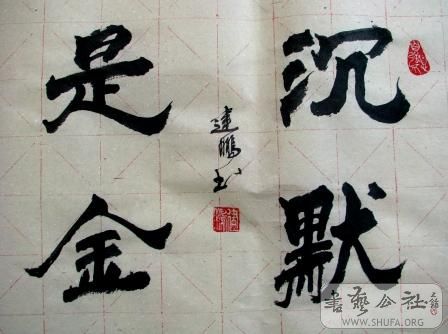 沉默
是金
建鹏书
书艺公社
WWW.SHUFA.ORG